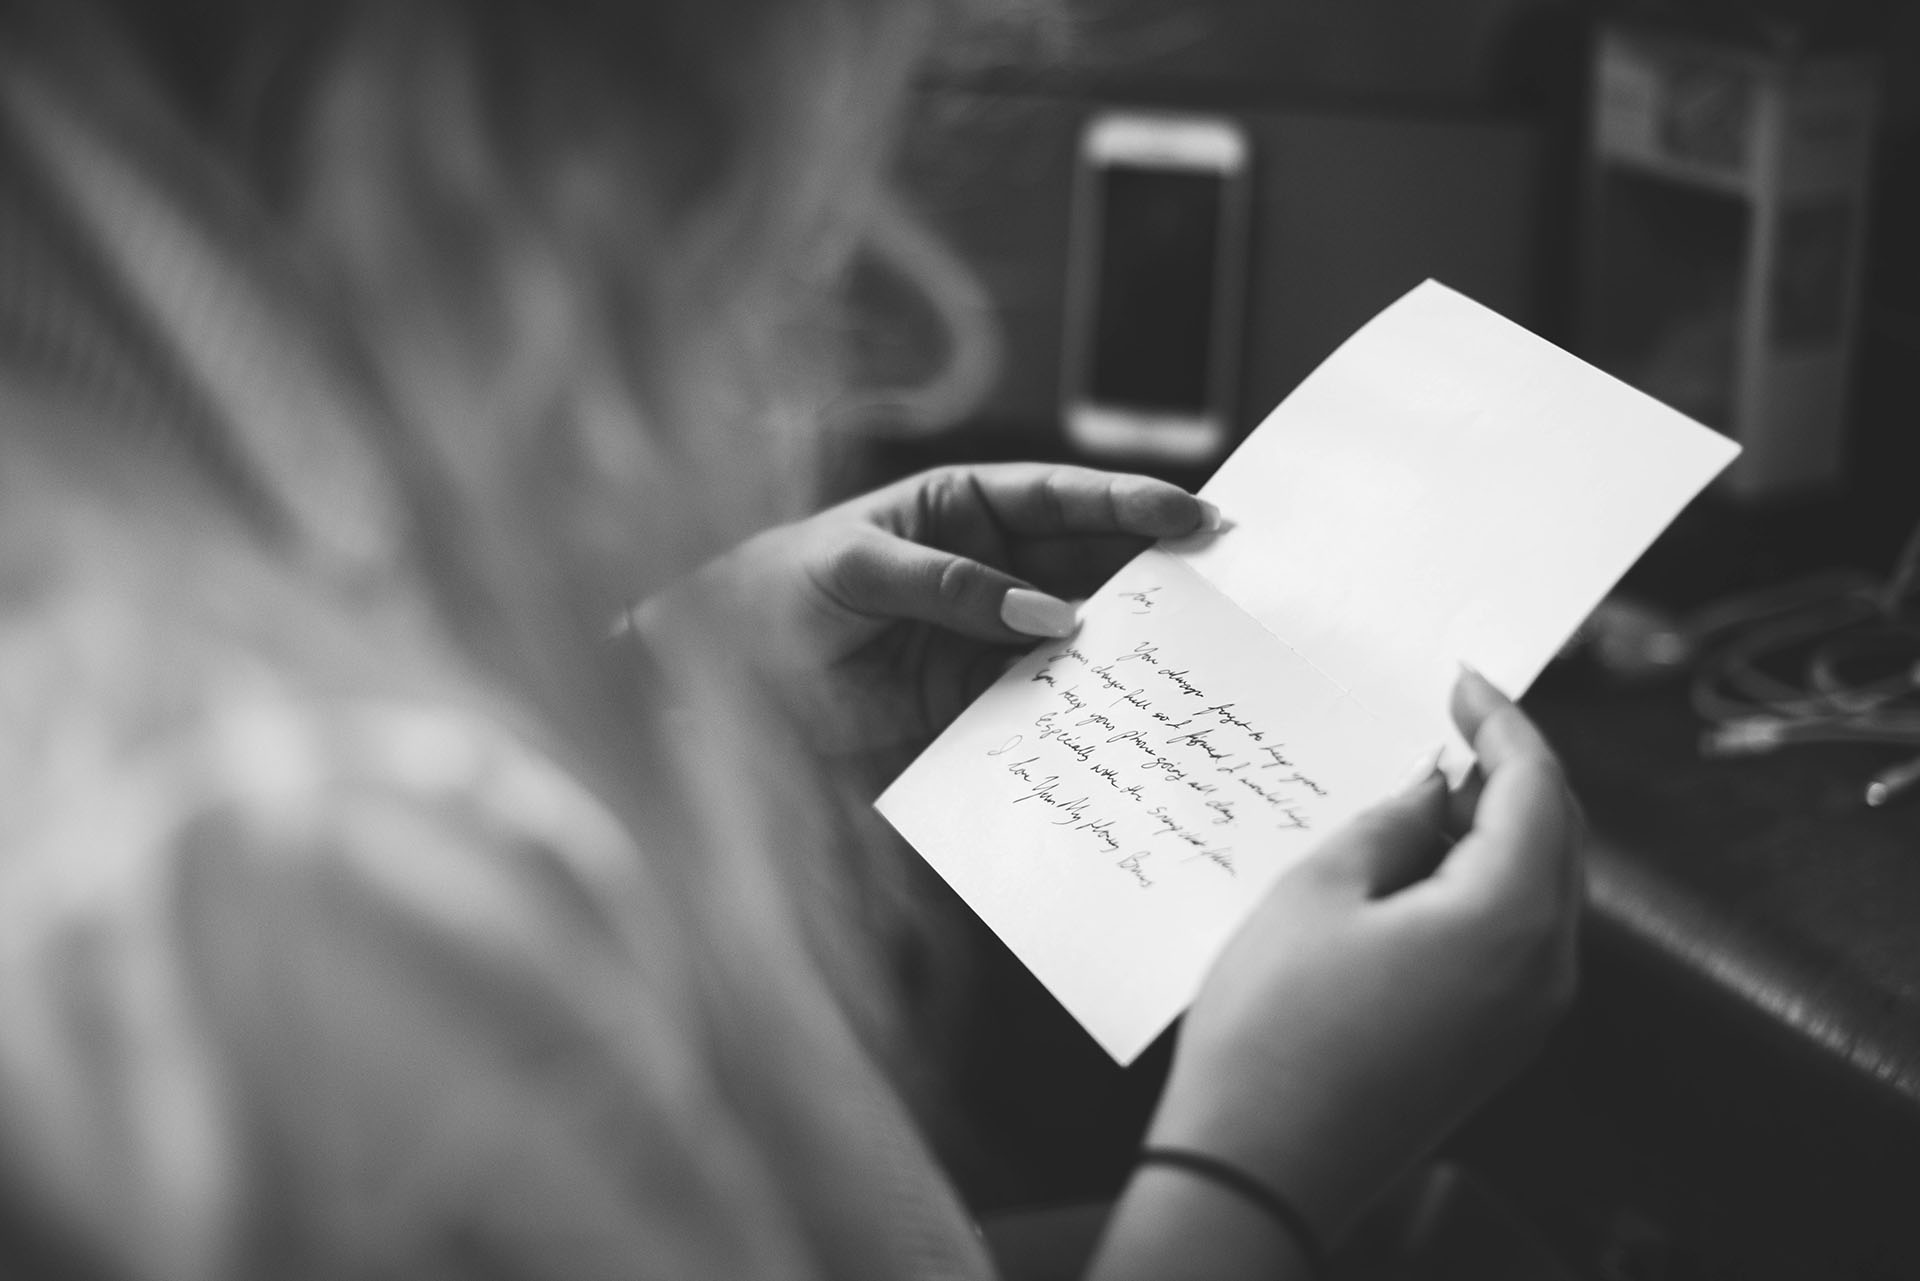 Love,
You always forget to keep your
your charger full so I figured I would help
you keep your phone going all day.
Especially with the snapchat filter
I love You My Honey Buns